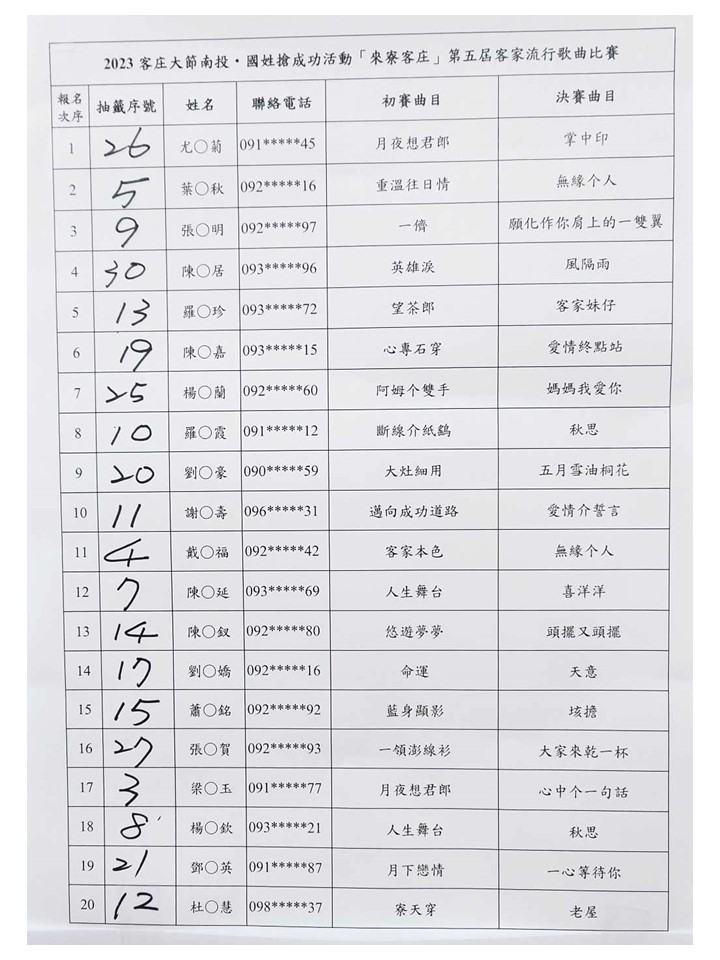 2023 客庄大節南投‧國姓搶成功活動「來寮客庄」第五屆客家流行歌曲比賽
報名次序 抽籤序號 姓名 聯絡電話 初賽曲目 決賽曲目
1 26 尤○菊 091*****45 月夜想君郎 掌中印
2 5 葉○秋 092*****16 重溫往日情 無緣个人
3 9 張○明 092*****97 一儕 願化作你肩上的一雙翼
4 30 陳○居 093*****96 英雄淚 風隔雨
5 13 羅○珍 093*****72 望茶郎 客家妹仔
6 19 陳○嘉 093*****15 心專石穿 愛情終點站
7 25 楊○蘭 092*****60 阿姆个雙手 媽媽我愛你
8 10 羅○霞 091*****12 斷線介紙鷂 秋思
9 20 劉○豪 090*****59 大灶細用 五月雪油桐花
10 11 謝○壽 096*****31 邁向成功道路 愛情介誓言
11 4 戴○福 092*****42 客家本色 無緣个人
12 7 陳○延 093*****69 人生舞台 喜洋洋
13 14 陳○釵 092*****80 悠遊夢夢 頭擺又頭擺
14 17 劉○嬌 092*****16 命運 天意
15 15 蕭○銘 092*****92 藍身顯影 㧡擔
16 27 張○賀 092*****93 一領澎線衫 大家來乾一杯
17 3 梁○玉 091*****77 月夜想君郎 心中个一句話
18 8 楊○欽 093*****21 人生舞台 秋思
19 21 鄧○英 091*****87 月下戀情 一心等待你
20 12 杜○慧 098*****37 寮天穿 老屋